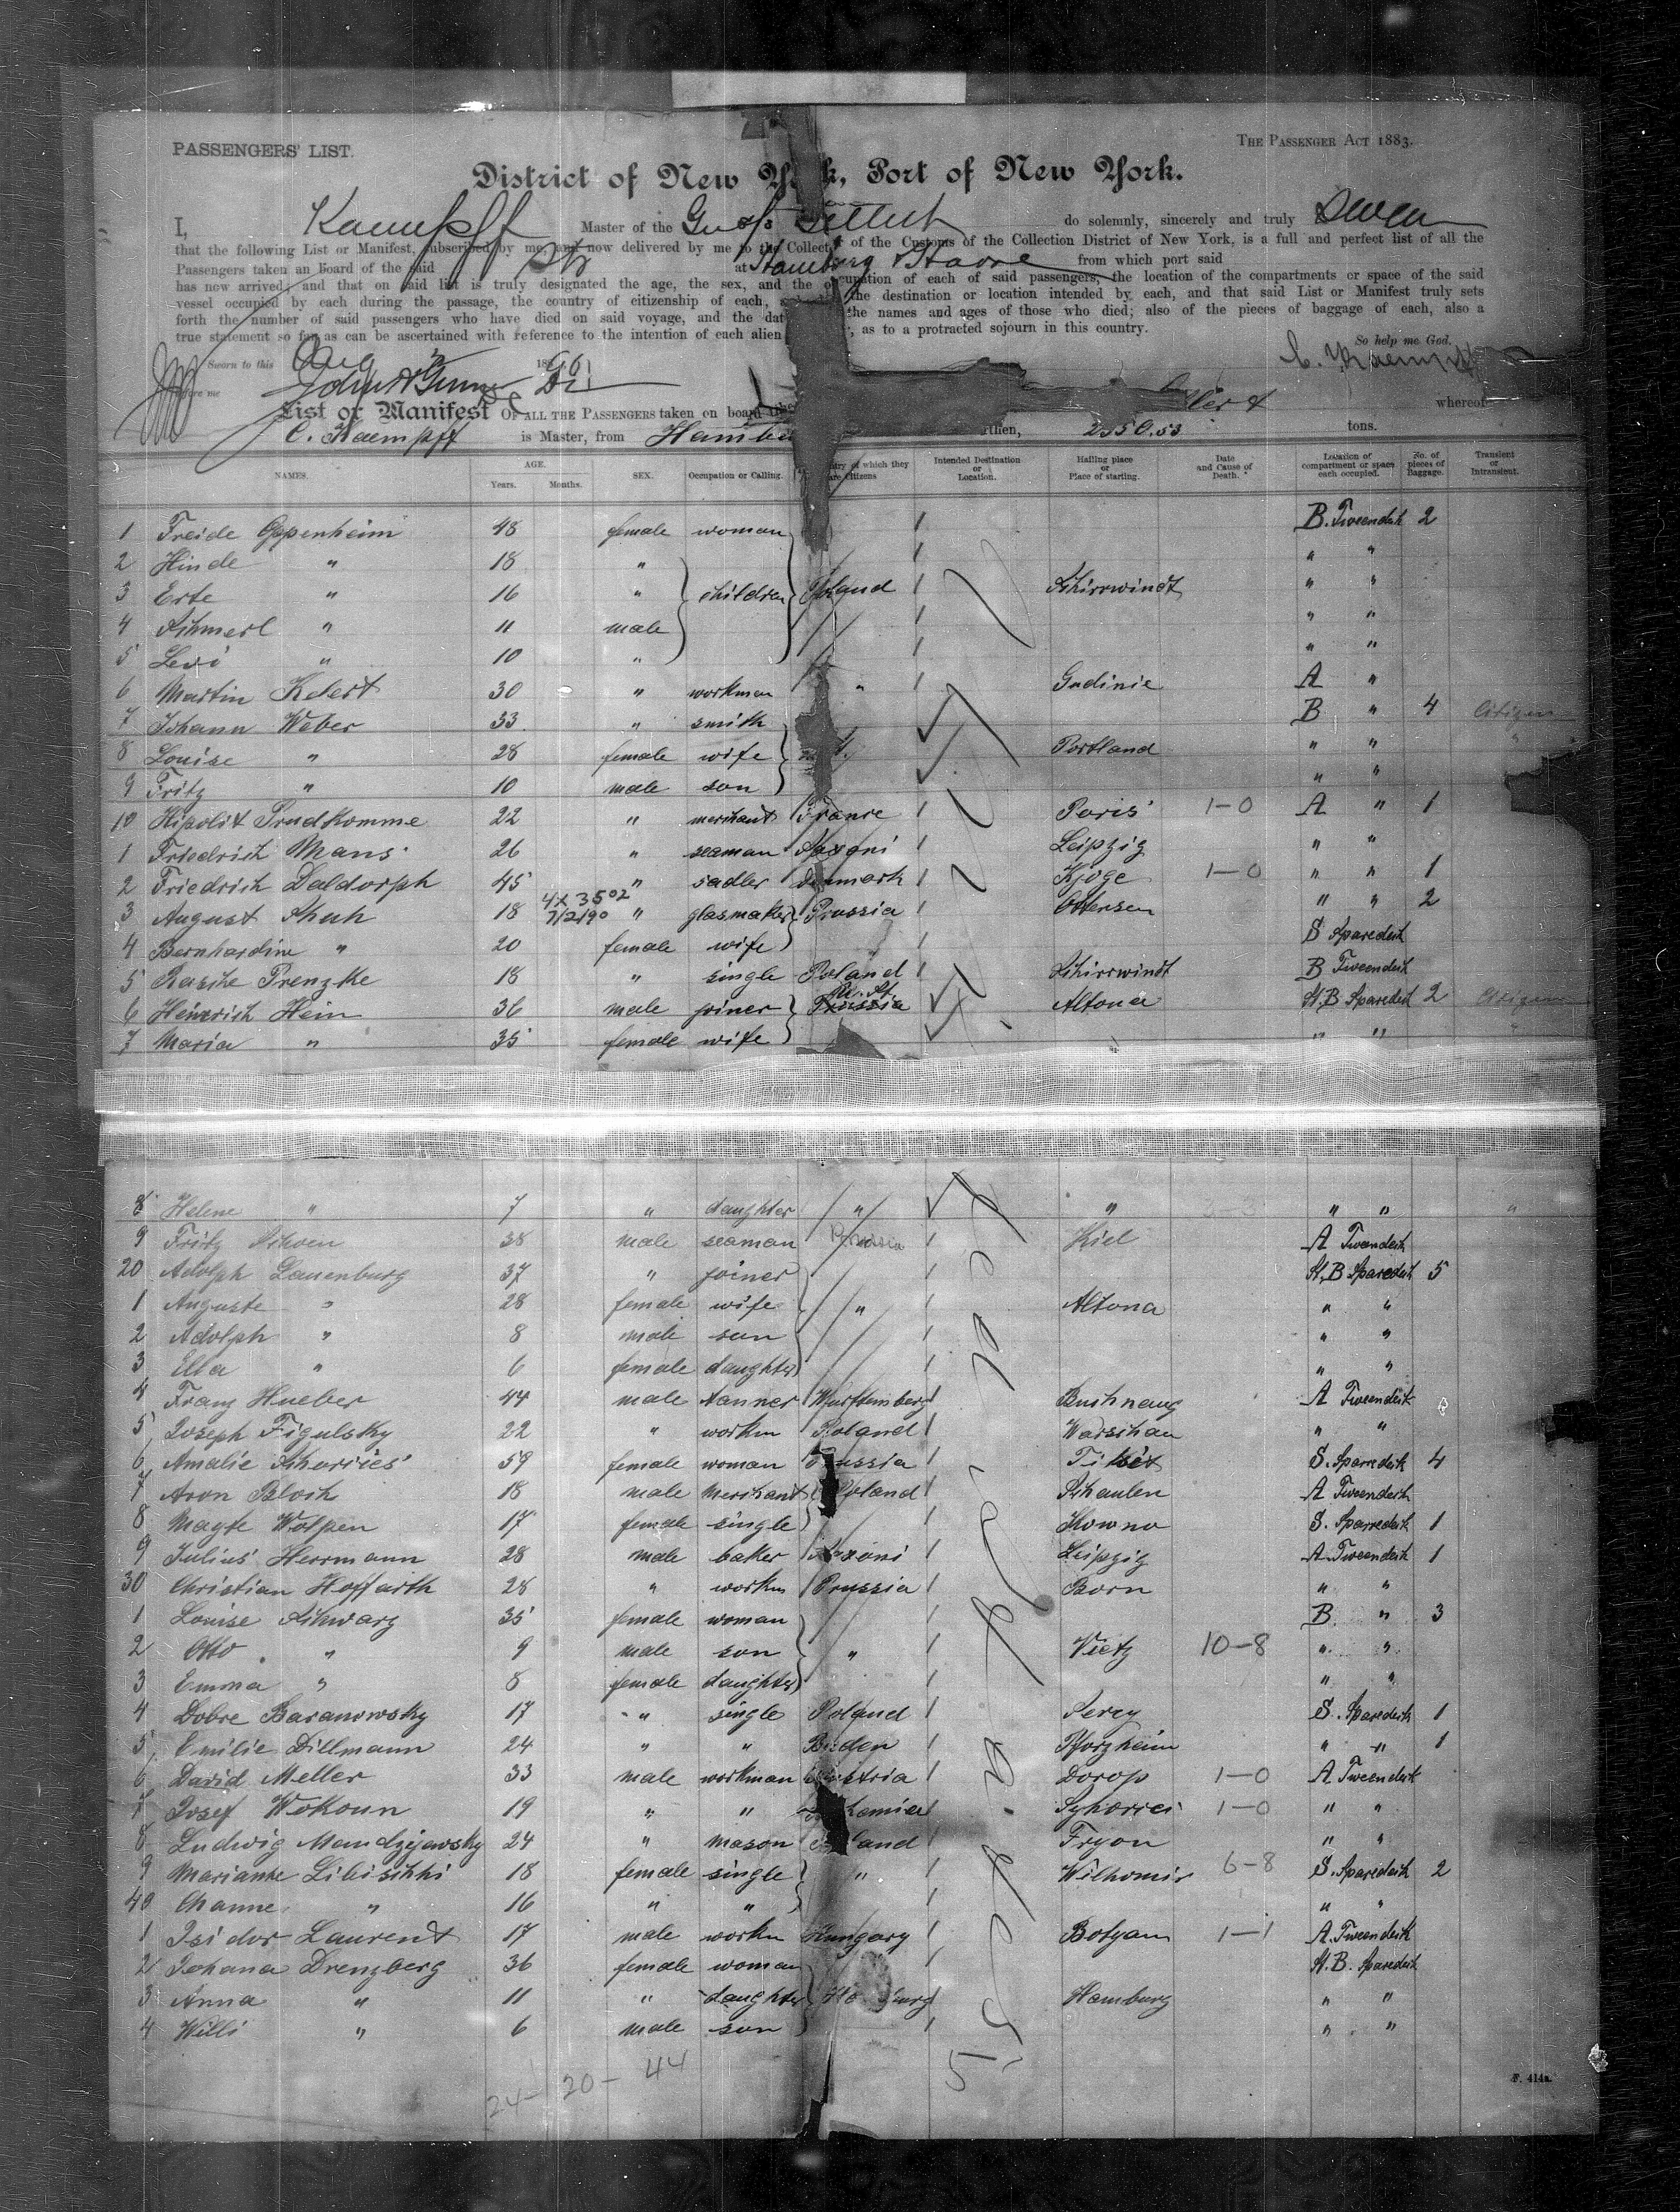 PASSENGERS' LIST.
THE PASSENGER ACT 1883.
District of New York, Port of New York.
I, Kaempff Master of the do solemnly, sincerely and truly Swear
that the following List or Manifest, subscribed by me, and now delivered by me to the Collector of the Customs of the Collection District of New York, is a full and perfect list of all the
Passengers taken an board of the said at Hamburg & Havre from which port said
has now arrived, and that on said list is truly designated the age, the sex, and the occupation of each of said passengers, the location of the compartments or space of the said
vessel occupied by each during the passage, the country of citizenship of each, the destination or location intended by each, and that said List or Manifest truly sets
forth the number of said passengers who have died on said voyage, and the dat the names and ages of those who died; also of the pieces of baggage of each, also a
true statement so far as can be ascertained with reference to the intention of each alien , as to a protracted sojourn in this country.
So help me God.
Sworn to this Aug 18
C. Kaempff
List or Manifest OF ALL THE PASSENGERS taken on board whereof
C. Kaempff is Master, from rthen, 2350.53 tons.
NAMES. AGE. Years. Months. SEX. Occupation or Calling. try of which they are Citizens Intended Destination or Location. Hailing place or Place of starting. Date and Cause of Death. Location of compartment or space each occupied. No. of pieces of Baggage. Transient or Intransient.
1 Freide Oppenheim 48 female woman B. Tweendeck 2
2 Hinde " 18 " " "
3 Erte " 16 " children Poland Schirrwindt " "
4 Schmerl " 11 male " "
5 Levi " 10 " " "
6 Martin 30 " workman " Gudinie A "
7 Johann Weber 33 " smith B " 4 Citizen
8 Louise " 28 female wife Portland " " "
9 Fritz " 10 male son " "
10 Hipolit Prudhomme 22 " merchant France Paris 1-0 A " 1
1 Friedrich Mans 26 " seaman Saxoni Leipzig " "
2 Friedrich Daldorph 45 " sadler Denmark Kjöge 1-0 " " 1
4X 3502
7/2/90
3 August Schuh 18 " glasmaker Prussia Ottensen " " 2
4 Bernhardine " 20 female wife S Sparedeck
5 Rasche Prenzke 18 " single Poland Schirrwindt B Tweendeck
6 Heinrich Hein 36 male joiner Prussia Un. St. Altona St. B Sparedeck 2 Citizen
7 Maria " 35 female wife " " "
8 Helene " 7 " daughter " " 3-3 " " "
9 Fritz Schoen 38 male seaman Prussia Kiel A Tweendeck
20 Adolph Lauenburg 37 " joiner St. B Sparedeck 5
1 Auguste " 28 female wife " Altona " "
2 Adolph " 8 male son " "
3 Ella " 6 female daughter " "
4 Franz Hueber 44 male tanner Wurttemberg Buchnaug A Tweendeck
5 Joseph Figulsky 22 " workm Poland Warschau " "
6 Amalie 59 female woman Prussia Tilsit S. Sparedeck 4
7 Aron Bloch 18 male merchant Poland Schaulen A Tweendeck
8 Mayte Wolpen 17 female single Kowno S. Sparedeck 1
9 Julius Herrmann 28 male baker Saxoni Leipzig A Tweendeck 1
30 Christian Hoffarth 28 " workm Prussia Born " "
1 Louise Schwarz 35 female woman B. " 3
2 Otto " 9 male son " Vietz 10-8 " "
3 Emma " 8 female daughter " "
4 Dobre Baranowsky 17 " single Poland Serey S. Sparedeck 1
5 Emilie Dillmann 24 " " Baden Pforzheim " " 1
6 David Meller 33 male workman Austria Dorop 1-0 A Tweendeck
7 Josef Wokoun 19 " " 1-0 " "
8 Ludwig Mandzijewsky 24 " mason Poland Fryon " "
9 Marianke Libischki 18 female single " Wilkomir 6-8 S. Sparedeck 2
40 Channe " 16 " " " "
1 Isidor Laurent 17 male workm Hungary Botyan 1-1 A Tweendeck
2 Johana Drenzberg 36 female woman St. B. Sparedeck
3 Anna " 11 " daughter Hamburg Hamburg " "
4 Willi " 6 male son " "
24- 20- 44
F. 414a.